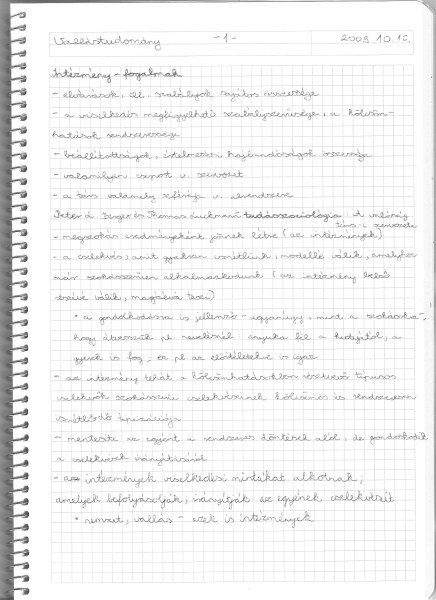 Vallástudomány - 1 - 2009. 10. 15.
Intézmény - fogalmak
- elvárások, ill. szabályok sajátos összessége
- a viselkedés megfigyelhető szabályszerűsége, a kölcsön-
hatások rendszeressége
- beállítottságok, értelmezési hajlandóságok összessége
- valamilyen csoport v. szervezet
- a társ. valamely szférája v. alrendszere
Peter L. Berger és Thomas Luckmann tudásszociológia. A valóság
társ-i szerveződése
- megszokás eredményeként jönnek létre (az intézmények)
- a cselekvés, amit gyakran ismétlünk, modellé válik, amelyhez
már szokásszerűen alkalmazkodunk (az intézmény belső
részévé válik, magáévá teszi)
• a gondolkodásra is jellemző - ugyanúgy, mint a szokásokra,
hogy átvesszük pl. nevelésnél - anyuka fél a kutyától, a
gyerek is fog, ez pl. az előítéletekre is igaz
- az intézmény tehát a kölcsönhatásokban résztvevő típusos
cselekvők szokásszerű cselekvéseinek kölcsönös és rendszeresen
ismétlődő tipizációja
- mentesíti az egyént a rendszeres döntések alól, de gondoskodik
a cselekvések irányításáról
- az intézmények viselkedési mintákat alkotnak,
amelyek befolyásolják, irányítják az egyének cselekvéseit
• nemzet, vallás - ezek is intézmények